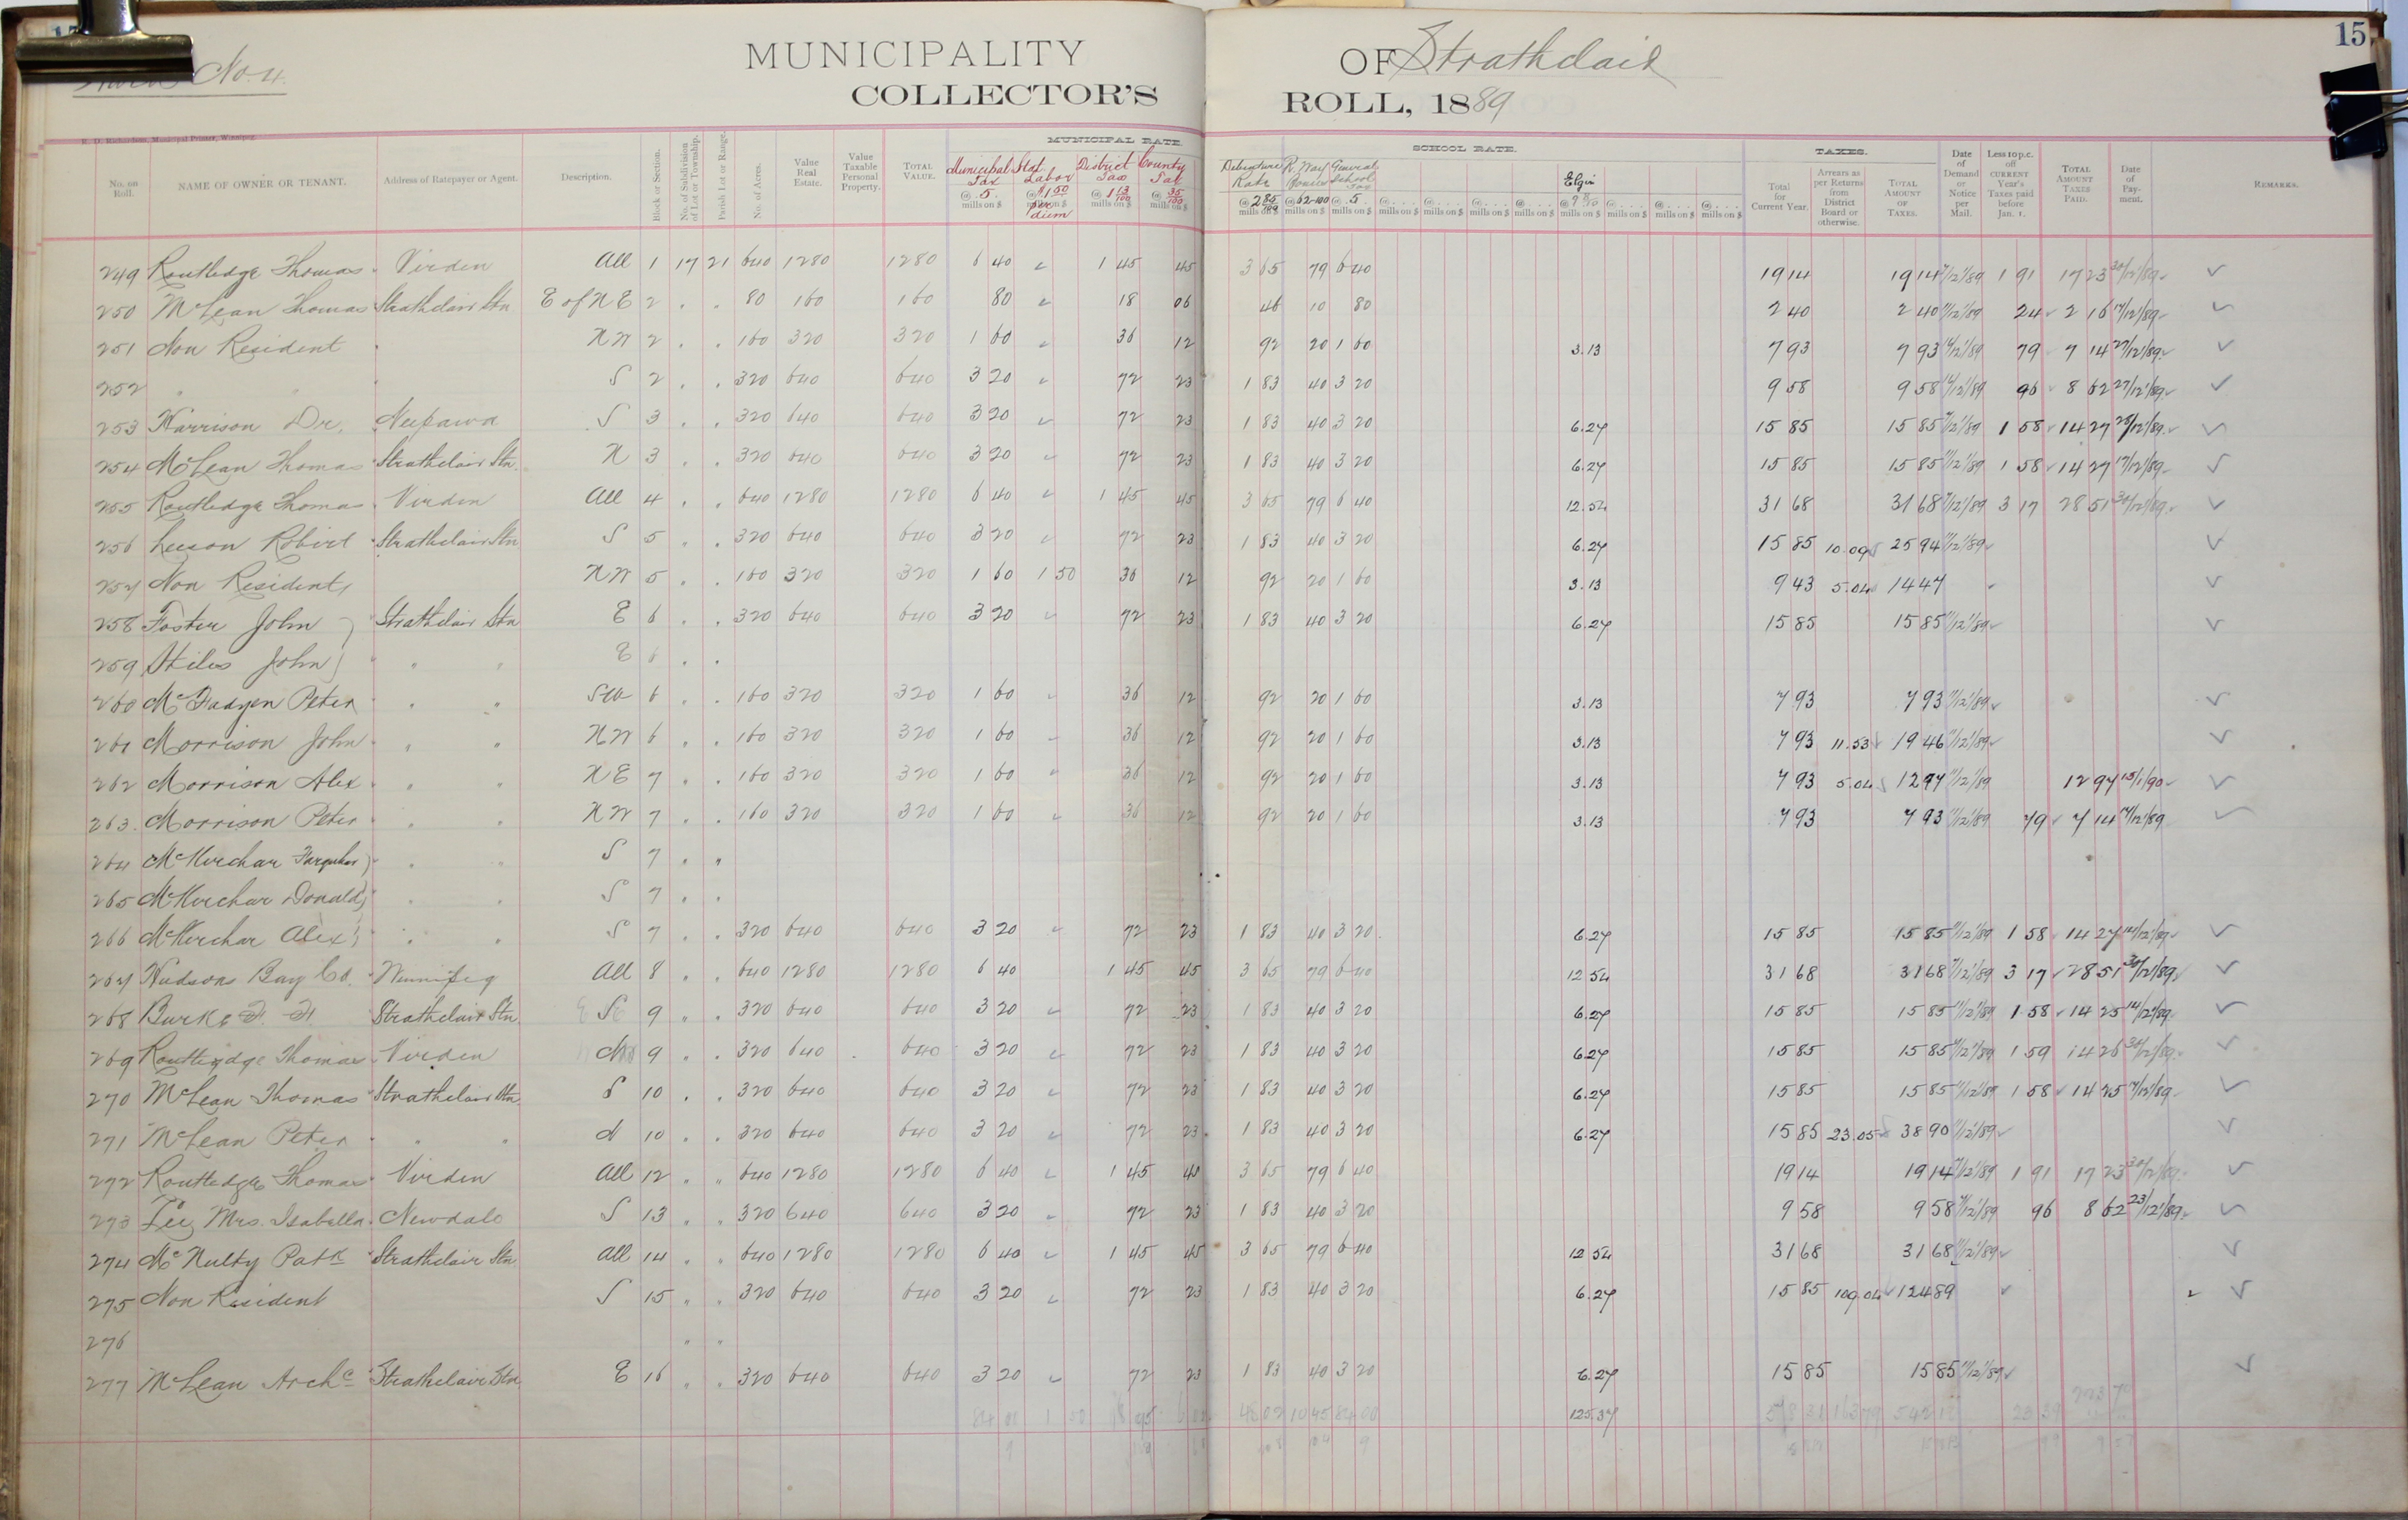 15
No. 4.
MUNICIPALITY OF Strathclair
COLLECTOR'S ROLL, 1889
R. D. Richardson, Municipal Printer, Winnipeg.
MUNICIPAL RATE. SCHOOL RATE. TAXES.
No. on Roll. NAME OF OWNER OR TENANT. Address of Ratepayer or Agent. Description. Block or Section. No. of Subdivision of Lot or Township. Parish Lot or Range. No. of Acres. Value Real Estate. Value Taxable Personal Property. TOTAL VALUE. Municipal Tax @ 5 mills on $ Stat Labor @ $1 50 per diem District Tax @ 1 13/100 mills on $ County Tax @ 35/100 mills on $ Debenture Rate @ 2 85/100 mills on $ @ 62-100 mills on $ General School Tax @ 5 mills on $ Elgin @ 9 8/10 mills on $ Total for Current Year. Arrears as per Returns from District Board or otherwise. TOTAL AMOUNT OF TAXES. Date of Demand or Notice per Mail. Less 10 p.c. off CURRENT Year's Taxes paid before Jan. 1. TOTAL AMOUNT TAXES PAID. Date of Payment. REMARKS.
249 Routledge Thomas Virden All 1 17 21 640 1280 1280 6 40 1 45 45 3 65 79 6 40 19 14 19 14 7/12/89 1 91 17 23 30/12/89
250 McLean Thomas Strathclair Stn E of N E 2 80 160 160 80 18 06 46 10 80 2 40 2 40 11/12/89 24 2 16 17/12/89
251 Non Resident N W 2 160 320 320 1 60 36 12 92 20 1 60 3.13 7 93 7 93 14/12/89 79 7 14 27/12/89
252 " " S 2 320 640 640 3 20 72 23 1 83 40 3 20 9 58 9 58 14/12/89 96 8 62 27/12/89
253 Harrison Dr. Neepawa S 3 320 640 640 3 20 72 23 1 83 40 3 20 6.27 15 85 15 85 7/12/89 1 58 14 27 28/12/89
254 McLean Thomas Strathclair Stn N 3 320 640 640 3 20 72 23 1 83 40 3 20 6.27 15 85 15 85 11/12/89 1 58 14 27 17/12/89
255 Routledge Thomas Virden All 4 640 1280 1280 6 40 1 45 45 3 65 79 6 40 12.54 31 68 31 68 7/12/89 3 17 28 51 30/12/89
256 Leeson Robert Strathclair Stn S 5 320 640 640 3 20 72 23 1 83 40 3 20 6.27 15 85 10.09 25 94 11/12/89
257 Non Resident N W 5 160 320 320 1 60 1 50 36 12 92 20 1 60 3.13 9 43 5.04 14 47
258 Foster John Strathclair Stn E 6 320 640 640 3 20 72 23 1 83 40 3 20 6.27 15 85 15 85 11/12/89
259 Stiles John " " E 6
260 McFadyen Peter " " S W 6 160 320 320 1 60 36 12 92 20 1 60 3.13 7 93 7 93 11/12/89
261 Morrison John " " N W 6 160 320 320 1 60 36 12 92 20 1 60 3.13 7 93 11.53 19 46 11/12/89
262 Morrison Alex " " N E 7 160 320 320 1 60 36 12 92 20 1 60 3.13 7 93 5.04 12 97 11/12/89 12 97 15/1/90
263 Morrison Peter " " N W 7 160 320 320 1 60 36 12 92 20 1 60 3.13 7 93 7 93 11/12/89 79 7 14 14/12/89
264 McKerchar Farquhar " " S 7
265 McKerchar Donald " " S 7
266 McKerchar Alex " " S 7 320 640 640 3 20 72 23 1 83 40 3 20 6.27 15 85 15 85 11/12/89 1 58 14 27 14/12/89
267 Hudsons Bay Co. Winnipeg All 8 640 1280 1280 6 40 1 45 45 3 65 79 6 40 12 54 31 68 31 68 7/12/89 3 17 28 51 30/12/89
268 Burke Strathclair Stn S 9 320 640 640 3 20 72 23 1 83 40 3 20 6.27 15 85 15 85 11/12/89 1 58 14 25 14/12/89
269 Routledge Thomas Virden N 9 320 640 640 3 20 72 23 1 83 40 3 20 6.27 15 85 15 85 7/12/89 1 59 14 26 30/12/89
270 McLean Thomas Strathclair Stn S 10 320 640 640 3 20 72 23 1 83 40 3 20 6.27 15 85 15 85 11/12/89 1 58 14 25 17/12/89
271 McLean Peter " " N 10 320 640 640 3 20 72 23 1 83 40 3 20 6.27 15 85 23.05 38 90 11/12/89
272 Routledge Thomas Virden All 12 640 1280 1280 6 40 1 45 40 3 65 79 6 40 19 14 19 14 7/12/89 1 91 17 23 30/12/89
273 Lee Mrs. Isabella Newdale S 13 320 640 640 3 20 72 23 1 83 40 3 20 9 58 9 58 7/12/89 96 8 62 23/12/89
274 McNulty Patk Strathclair Stn All 14 640 1280 1280 6 40 1 45 45 3 65 79 6 40 12 54 31 68 31 68 11/12/89
275 Non Resident S 15 320 640 640 3 20 72 23 1 83 40 3 20 6.27 15 85 109.04 124 89
276 " "
277 McLean Archd Strathclair Stn E 16 320 640 640 3 20 72 23 1 83 40 3 20 6.27 15 85 15 85 11/12/89
84 00 1 50 10 45 84 00 125.37